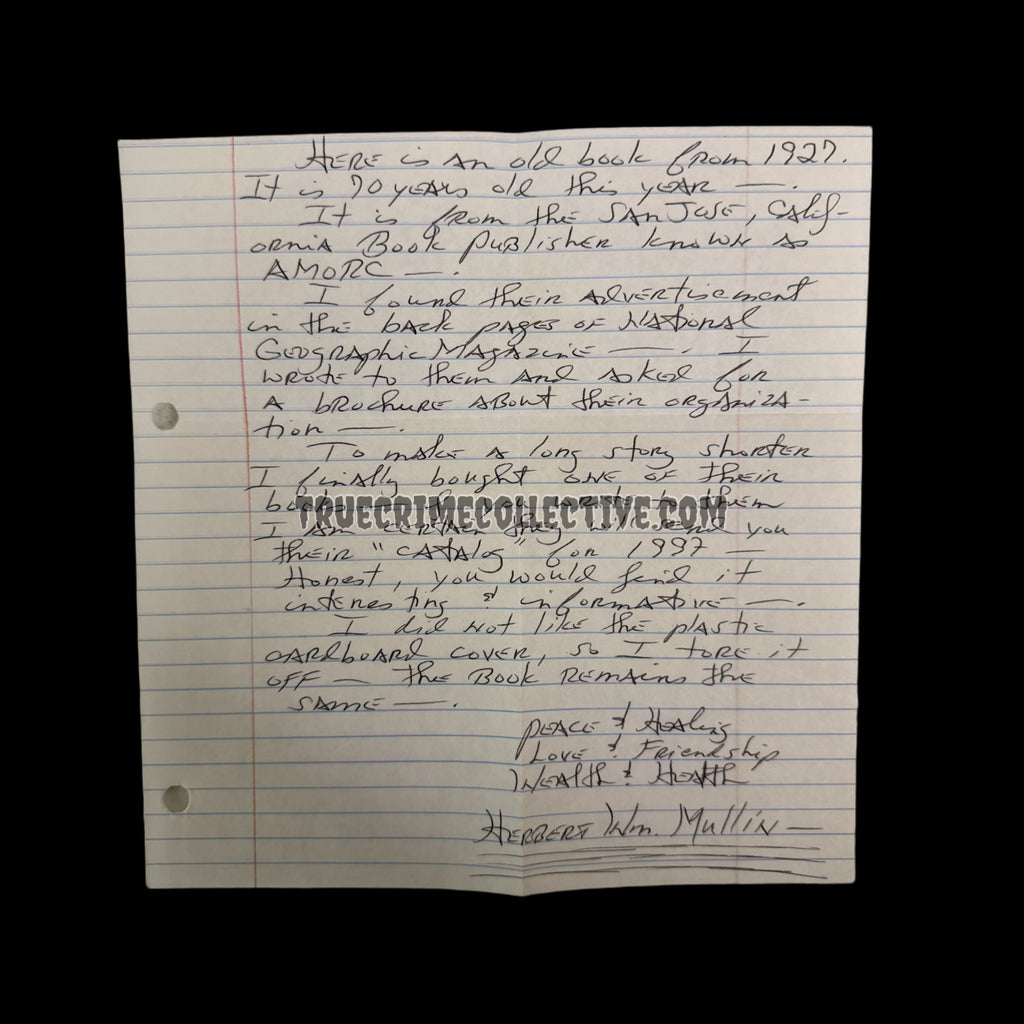 HERE is an old book from 1927.
It is 70 years old this year —.
It is from the San Jose, Calif-
ornia Book Publisher known as
AMORC —.
I found their advertisement
in the back pages of National
Geographic Magazine —. I
wrote to them and asked for
a brochure about their organiza-
tion —.
To make a long story shorter
I finally bought one of their
write to them
TRUECRIMECOLLECTIVE.COM
I am certain they will send you
their "catalog" for 1997 —
Honest, you would find it
interesting & informative —.
I did not like the plastic
cardboard cover, so I tore it
off — the Book remains the
same —.
Peace & Healing
Love & Friendship
Wealth & Health
Herbert Wm. Mullin —